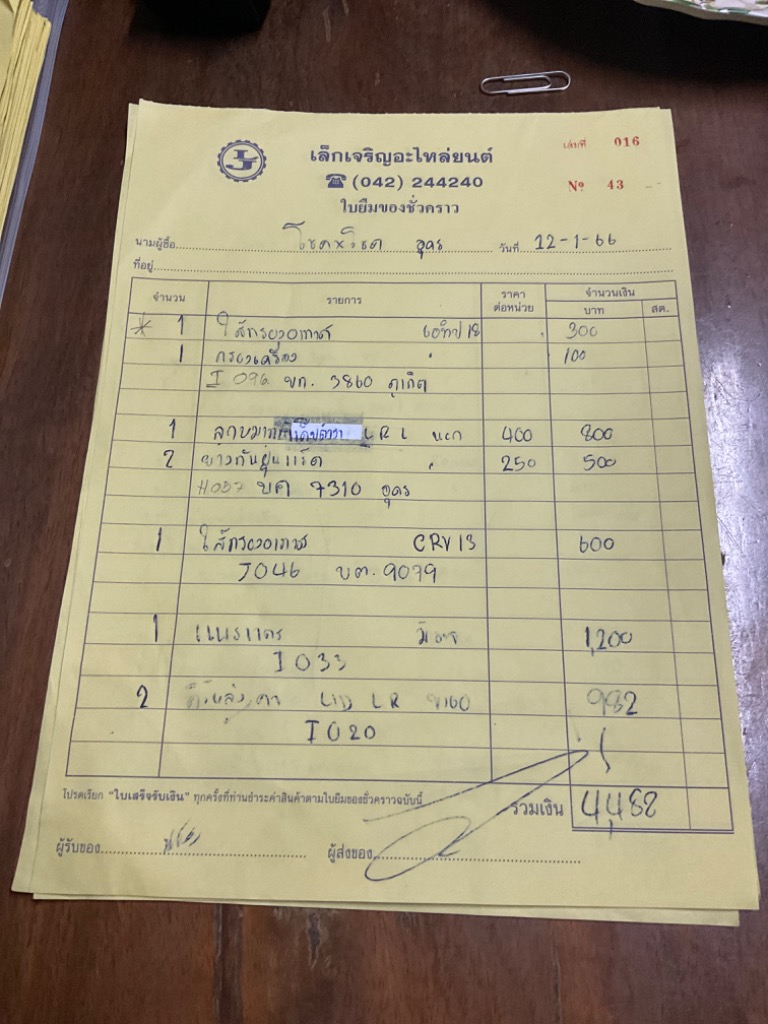 เล็กเจริญอะไหล่ยนต์ เล่มที่ 016
☎ (042) 244240 Nº 43
ใบยืมของชั่วคราว
นามผู้ซื้อ อุดร วันที่ 12-1-66
ที่อยู่
จำนวน รายการ ราคาต่อหน่วย จำนวนเงิน บาท สต.
* 1 ไส้กรองอากาศ 18 300
1 กรองเครื่อง " 100
I 096 ขก. 3860 ภูเก็ต
1 ลูกหมาก L R L นอก 400 800
2 ยางกันฝุ่นแร็ค " 250 500
H057 บค 7310 อุดร
1 ไส้กรองอากาศ CRV 13 600
J046 บต. 9079
1 1,200
I 033
2 L R 982
I 020
โปรดเรียก "ใบเสร็จรับเงิน" ทุกครั้งที่ท่านชำระค่าสินค้าตามใบยืมของชั่วคราวฉบับนี้
รวมเงิน 4,482
ผู้รับของ ผู้ส่งของ